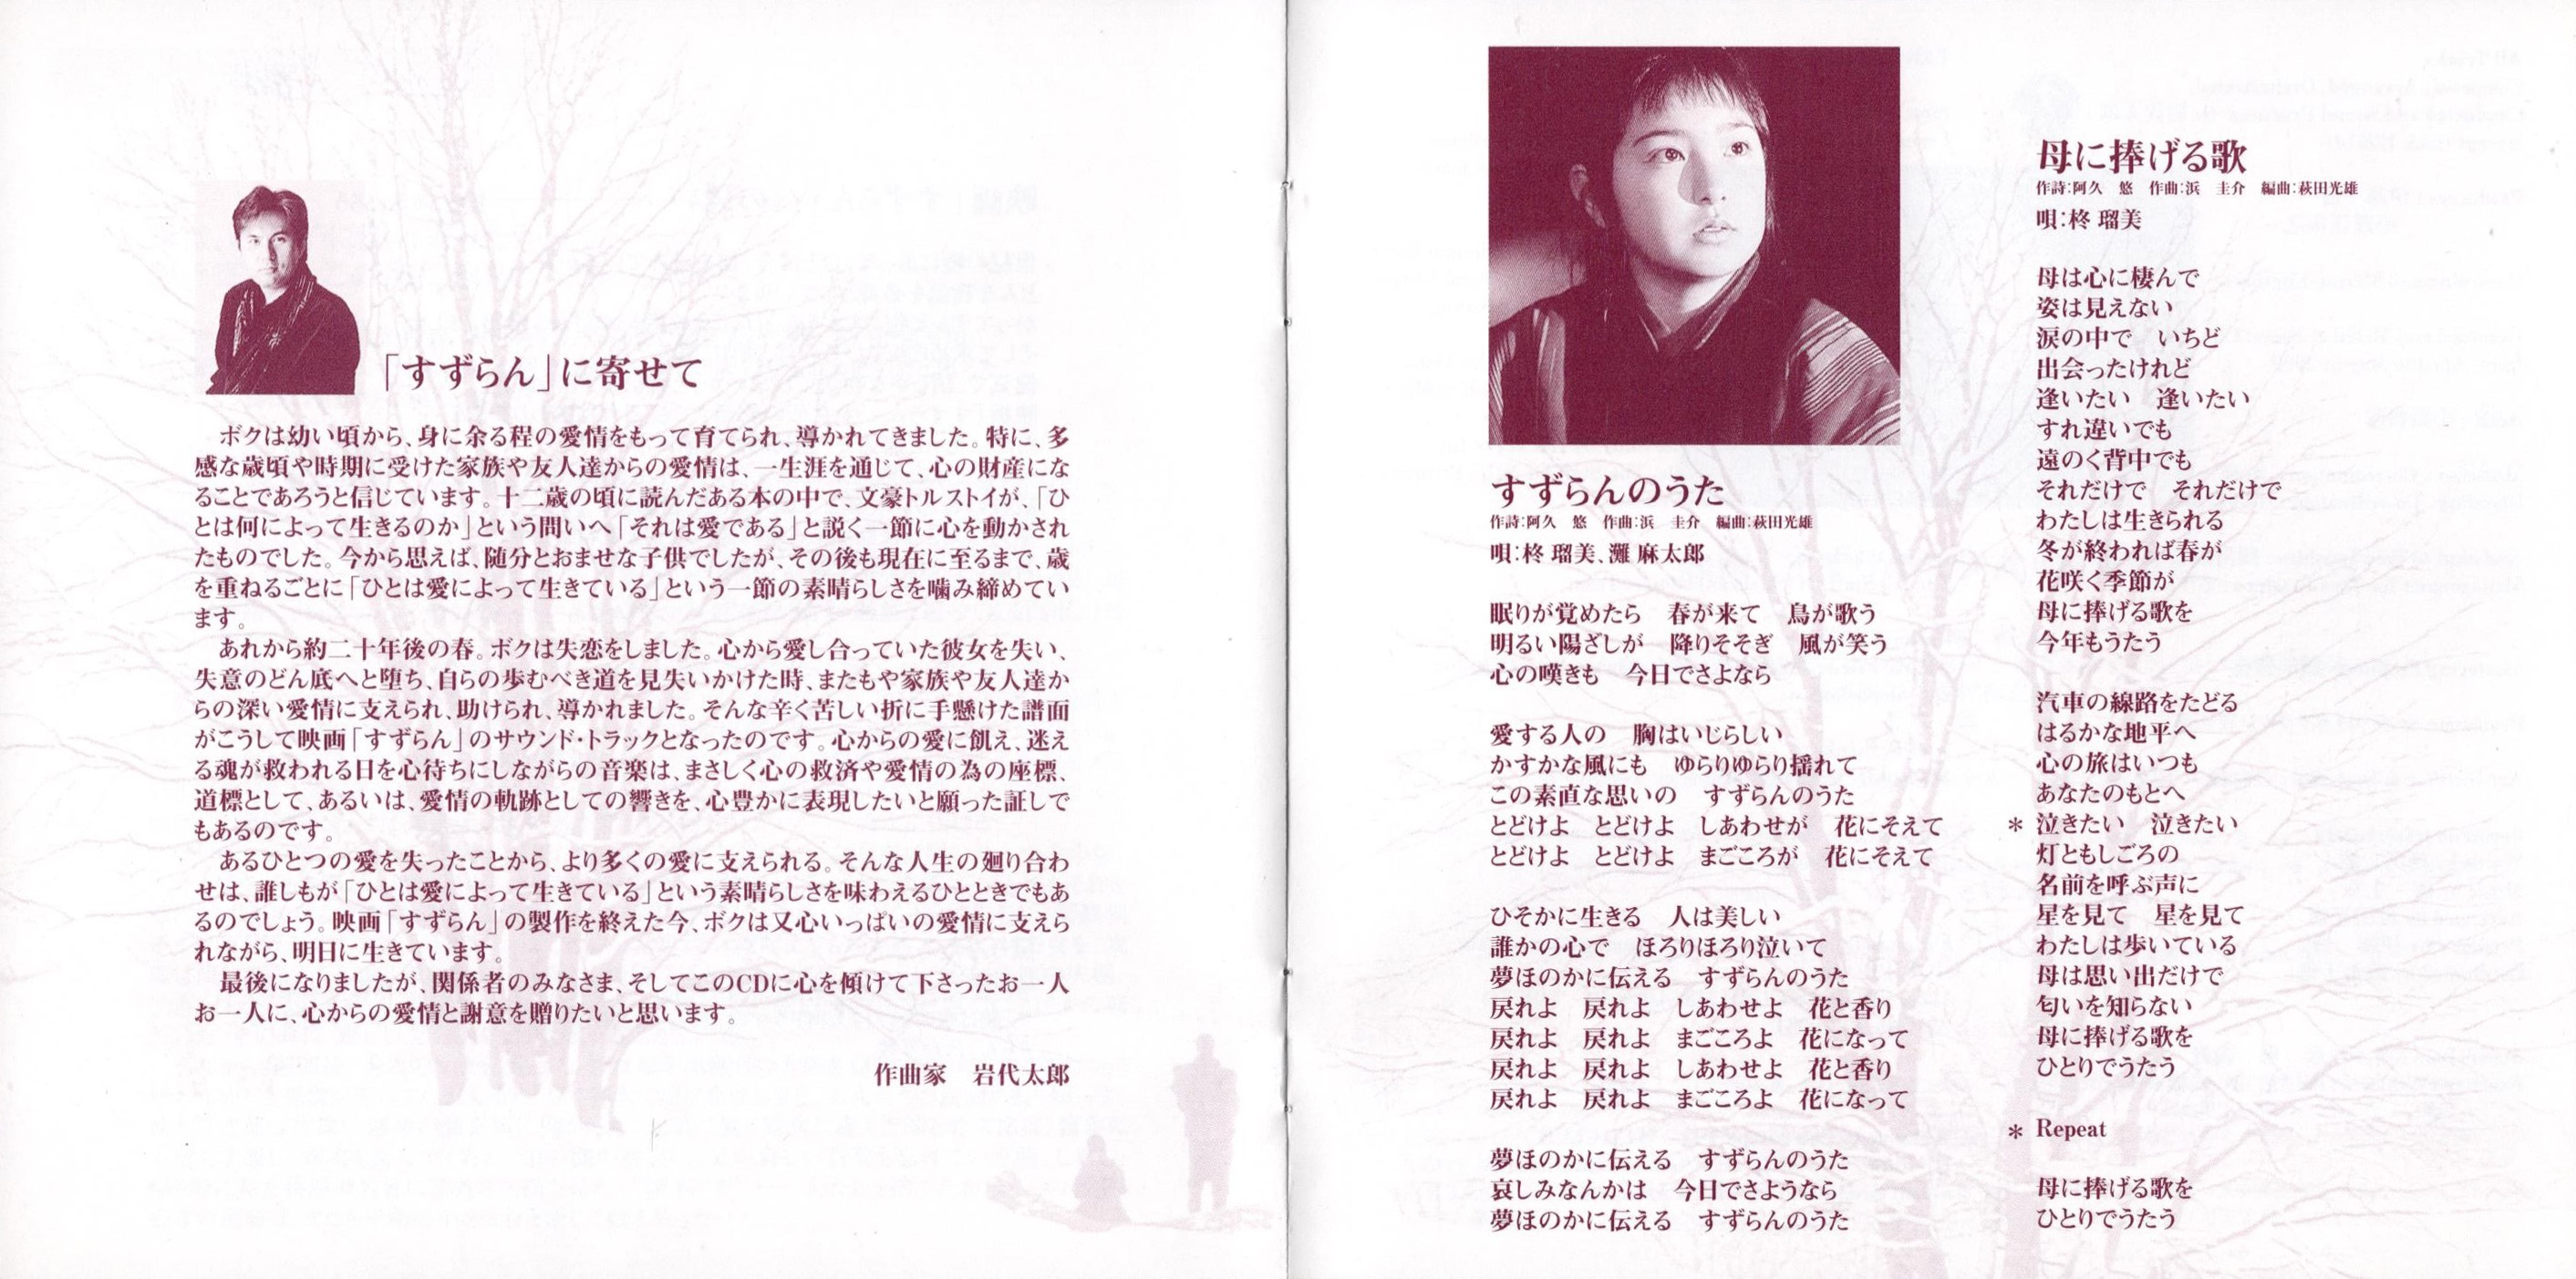 「すずらん」に寄せて
ボクは幼い頃から、身に余る程の愛情をもって育てられ、導かれてきました。特に、多
感な歳頃や時期に受けた家族や友人達からの愛情は、一生涯を通じて、心の財産にな
ることであろうと信じています。十二歳の頃に読んだある本の中で、文豪トルストイが、「ひ
とは何によって生きるのか」という問いへ「それは愛である」と説く一節に心を動かされ
たものでした。今から思えば、随分とおませな子供でしたが、その後も現在に至るまで、歳
を重ねるごとに「ひとは愛によって生きている」という一節の素晴らしさを噛み締めてい
ます。
あれから約二十年後の春。ボクは失恋をしました。心から愛し合っていた彼女を失い、
失意のどん底へと堕ち、自らの歩むべき道を見失いかけた時、またもや家族や友人達か
らの深い愛情に支えられ、助けられ、導かれました。そんな辛く苦しい折に手懸けた譜面
がこうして映画「すずらん」のサウンド・トラックとなったのです。心からの愛に飢え、迷え
る魂が救われる日を心待ちにしながらの音楽は、まさしく心の救済や愛情の為の座標、
道標として、あるいは、愛情の軌跡としての響きを、心豊かに表現したいと願った証しで
もあるのです。
あるひとつの愛を失ったことから、より多くの愛に支えられる。そんな人生の廻り合わ
せは、誰しもが「ひとは愛によって生きている」という素晴らしさを味わえるひとときでもあ
るのでしょう。映画「すずらん」の製作を終えた今、ボクは又心いっぱいの愛情に支えら
れながら、明日に生きています。
最後になりましたが、関係者のみなさま、そしてこのCDに心を傾けて下さったお一人
お一人に、心からの愛情と謝意を贈りたいと思います。
作曲家　岩代太郎
すずらんのうた
作詩:阿久　悠　作曲:浜　圭介　編曲:萩田光雄
唄:柊 瑠美、灘 麻太郎
眠りが覚めたら　春が来て　鳥が歌う
明るい陽ざしが　降りそそぎ　風が笑う
心の嘆きも　今日でさよなら
愛する人の　胸はいじらしい
かすかな風にも　ゆらりゆらり揺れて
この素直な思いの　すずらんのうた
とどけよ　とどけよ　しあわせが　花にそえて
とどけよ　とどけよ　まごころが　花にそえて
ひそかに生きる　人は美しい
誰かの心で　ほろりほろり泣いて
夢ほのかに伝える　すずらんのうた
戻れよ　戻れよ　しあわせよ　花と香り
戻れよ　戻れよ　まごころよ　花になって
戻れよ　戻れよ　しあわせよ　花と香り
戻れよ　戻れよ　まごころよ　花になって
夢ほのかに伝える　すずらんのうた
哀しみなんかは　今日でさようなら
夢ほのかに伝える　すずらんのうた
母に捧げる歌
作詩:阿久　悠　作曲:浜　圭介　編曲:萩田光雄
唄:柊 瑠美
母は心に棲んで
姿は見えない
涙の中で　いちど
出会ったけれど
逢いたい　逢いたい
すれ違いでも
遠のく背中でも
それだけで　それだけで
わたしは生きられる
冬が終われば春が
花咲く季節が
母に捧げる歌を
今年もうたう
汽車の線路をたどる
はるかな地平へ
心の旅はいつも
あなたのもとへ
＊ 泣きたい　泣きたい
灯ともしごろの
名前を呼ぶ声に
星を見て　星を見て
わたしは歩いている
母は思い出だけで
匂いを知らない
母に捧げる歌を
ひとりでうたう
＊ Repeat
母に捧げる歌を
ひとりでうたう